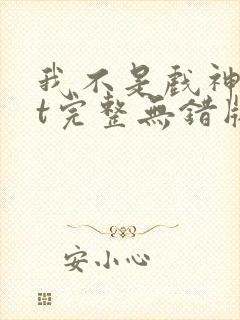 我不是戲神
t完整無錯版
安小心